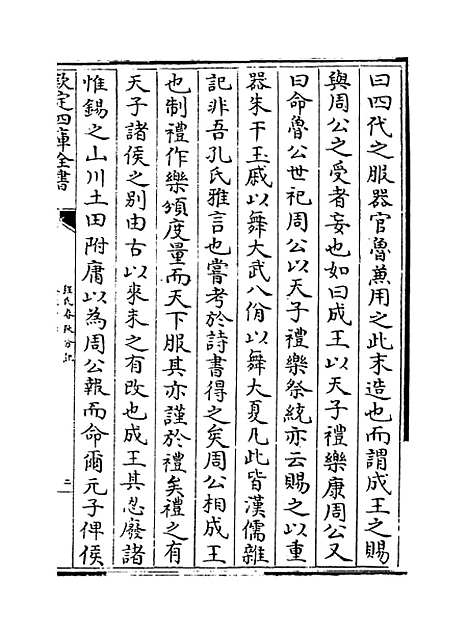 曰四代之服器官魯蕙用之此末造也而謂成王之賜
與周公之受者妄也如曰成王以天子禮樂康周公又
曰命魯公世祀周公以天子禮樂祭統亦云賜之以重
器朱干玉戚以舞大武八佾以舞大夏凡此皆漢儒雜
記非吾孔氏雅言也嘗考於詩書得之矣周公相成王
也制禮作樂頒度量而天下服其亦謹於禮矣禮之有
天子諸侯之別由古以來未之有改也成王其忍廢諸
惟錫之山川土田附庸以為周公報而命爾元子俾侯
欽定四庫全書
程氏春秋分記
二